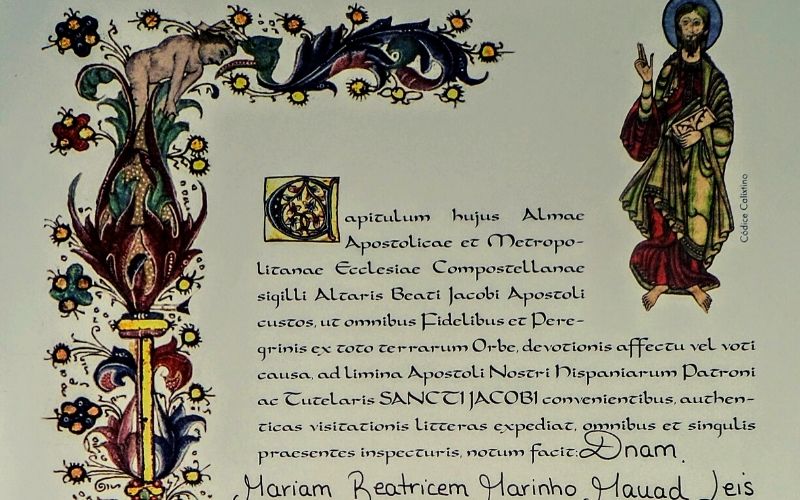 Capitulum hujus Almae
Apostolicae et Metropo-
litanae Ecclesiae Compostellanae
sigilli Altaris Beati Jacobi Apostoli
custos, ut omnibus Fidelibus et Pere-
grinis ex toto terrarum Orbe, devotionis affectu vel voti
causa, ad limina Apostoli Nostri Hispaniarum Patroni
ac Tutelaris SANCTI JACOBI convenientibus, authen-
ticas visitationis litteras expediat, omnibus et singulis
praesentes inspecturis, notum facit: Dnam.
Mariam Beatricem Marinho Mauad Jeis
Códice Calixtino